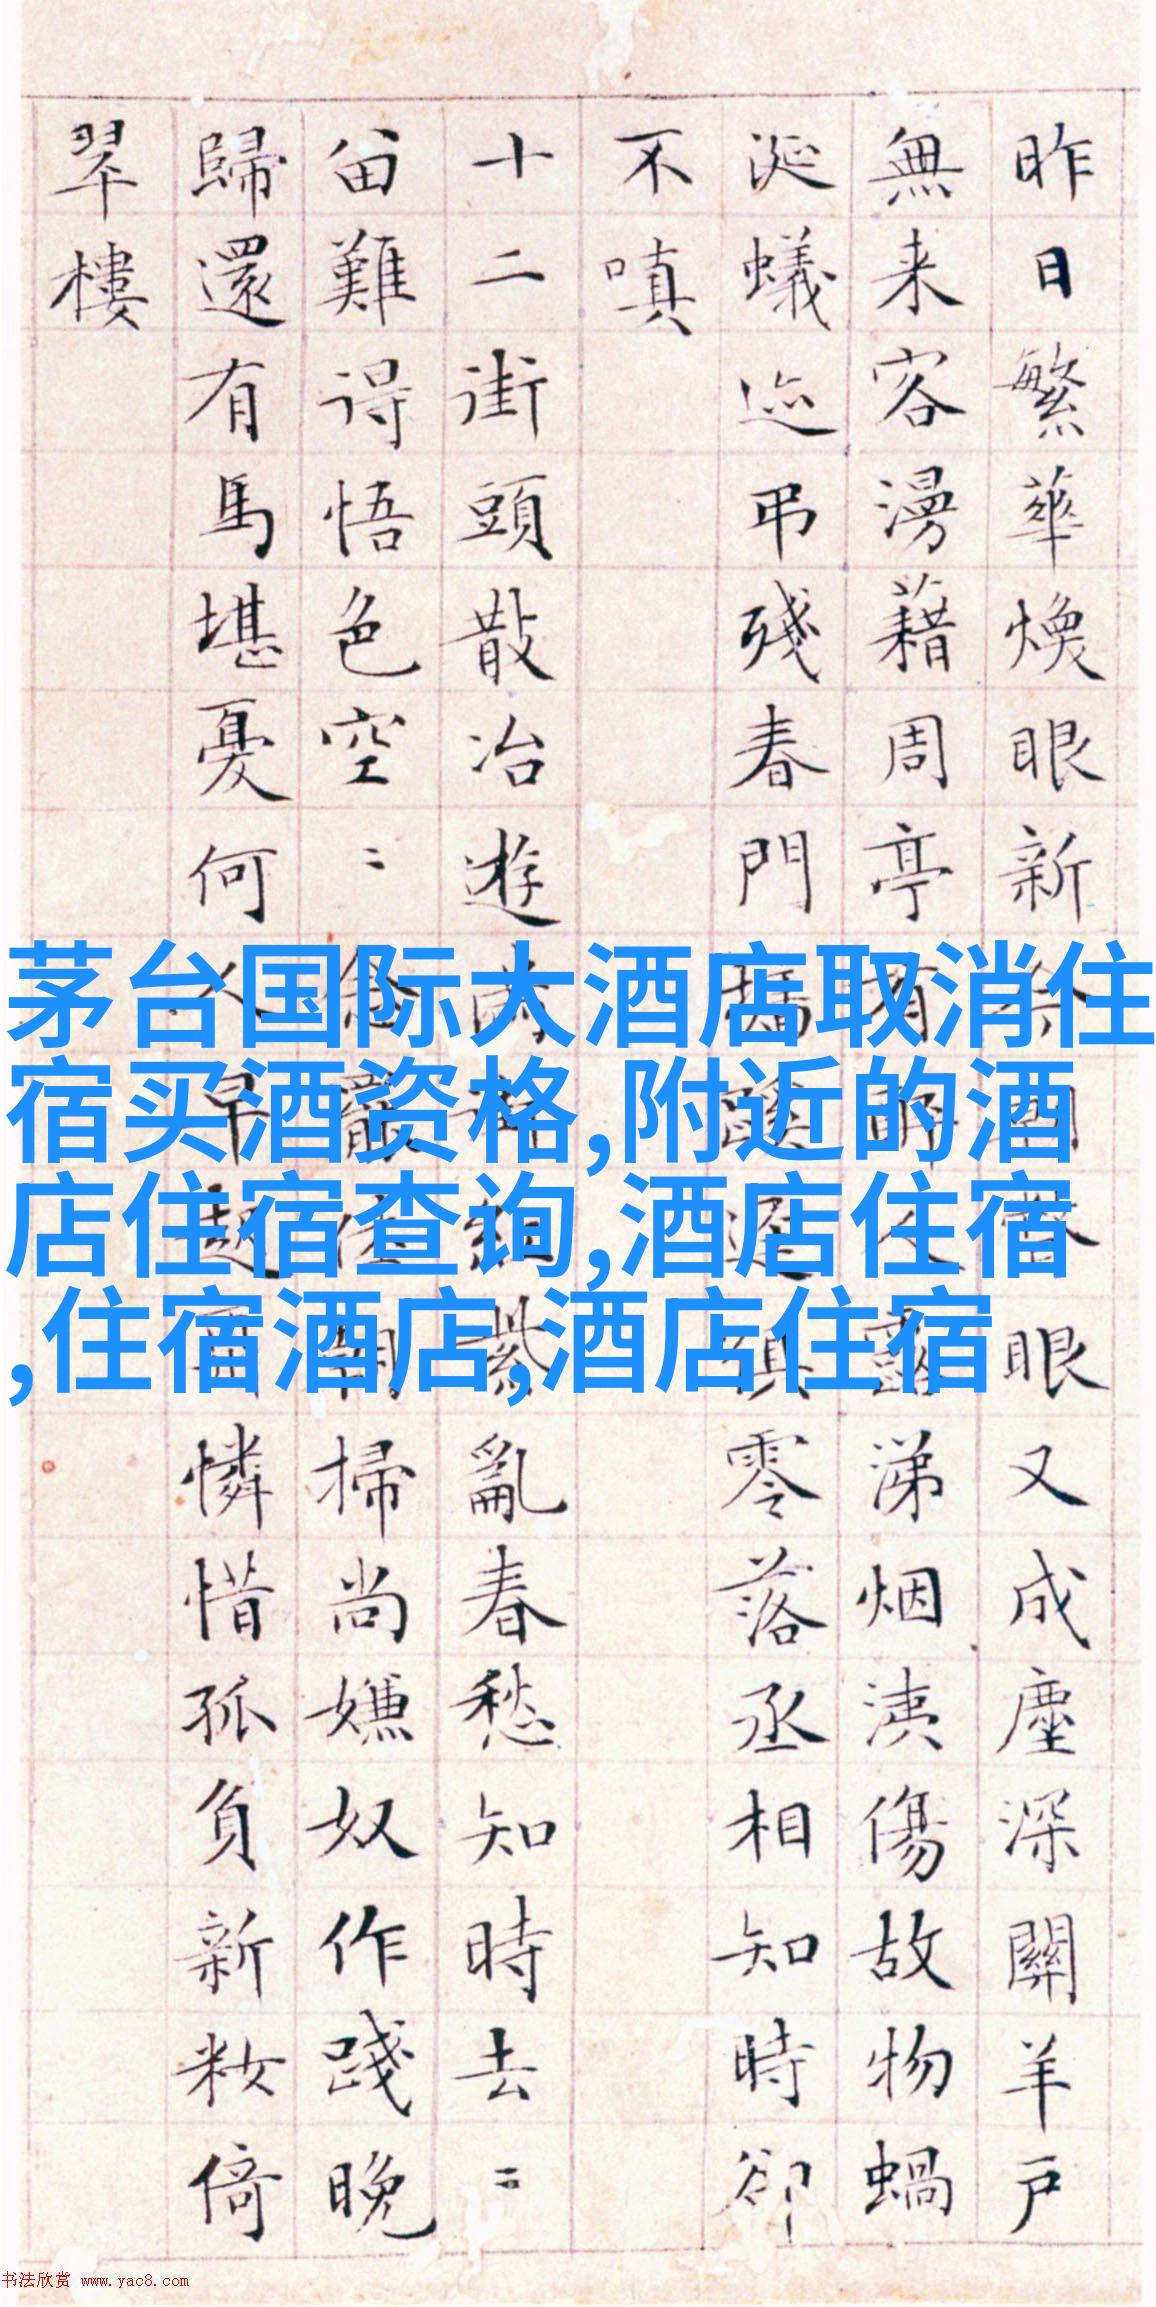 昨日繁華煥眼新
眼又成塵深關羊戶
無来客漫藉周亭
涕烟洟傷故物蝸
涎蟻迹弔殘春門
零落丞相知時卻
不嗔
十二街頭散冶遊
亂春愁知時去〻
留難得悟色空〻
掃尚嫌奴作踐晚
歸還有馬堪憂何
憐惜孤負新妝倚
翠樓
茅台国际大酒店取消住
宿买酒资格,附近的酒
店住宿查询,酒店住宿
,住宿酒店,酒店住宿
书法欣赏 www.yac8.com